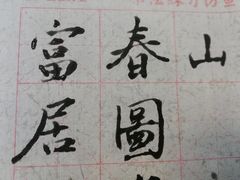 富春山
居圖